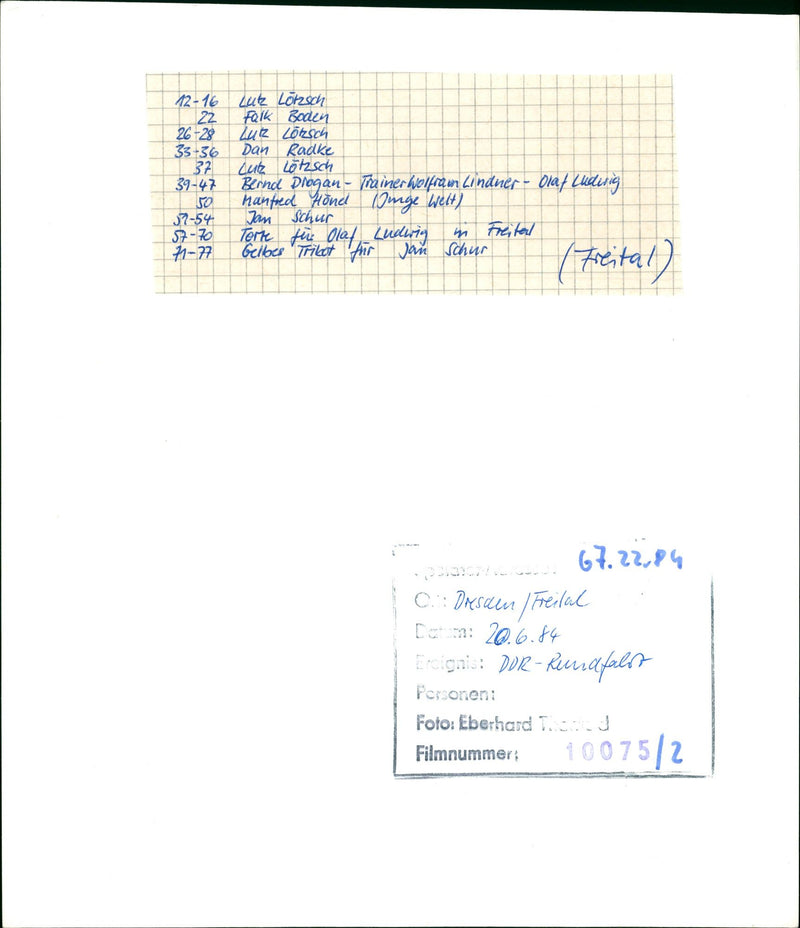 12-16 Lutz Lötzsch
22 Falk Boden
26-28 Lutz Lötzsch
33-36 Dan Radke
37 Lutz Lötzsch
39-47 Bernd Drogan - Trainer Wolfram Lindner - Olaf Ludwig
50 Manfred Hönel (Junge Welt)
51-54 Jan Schur
57-70 Torte für Olaf Ludwig in Freital
71-77 Gelbes Trikot für Jan Schur
(Freital)
67.22.84
Dresden/Freital
Datum: 20.6.84
Ereignis: DDR-Rundfahrt
Personen:
Foto: Eberhard
Filmnummer: 10075/2